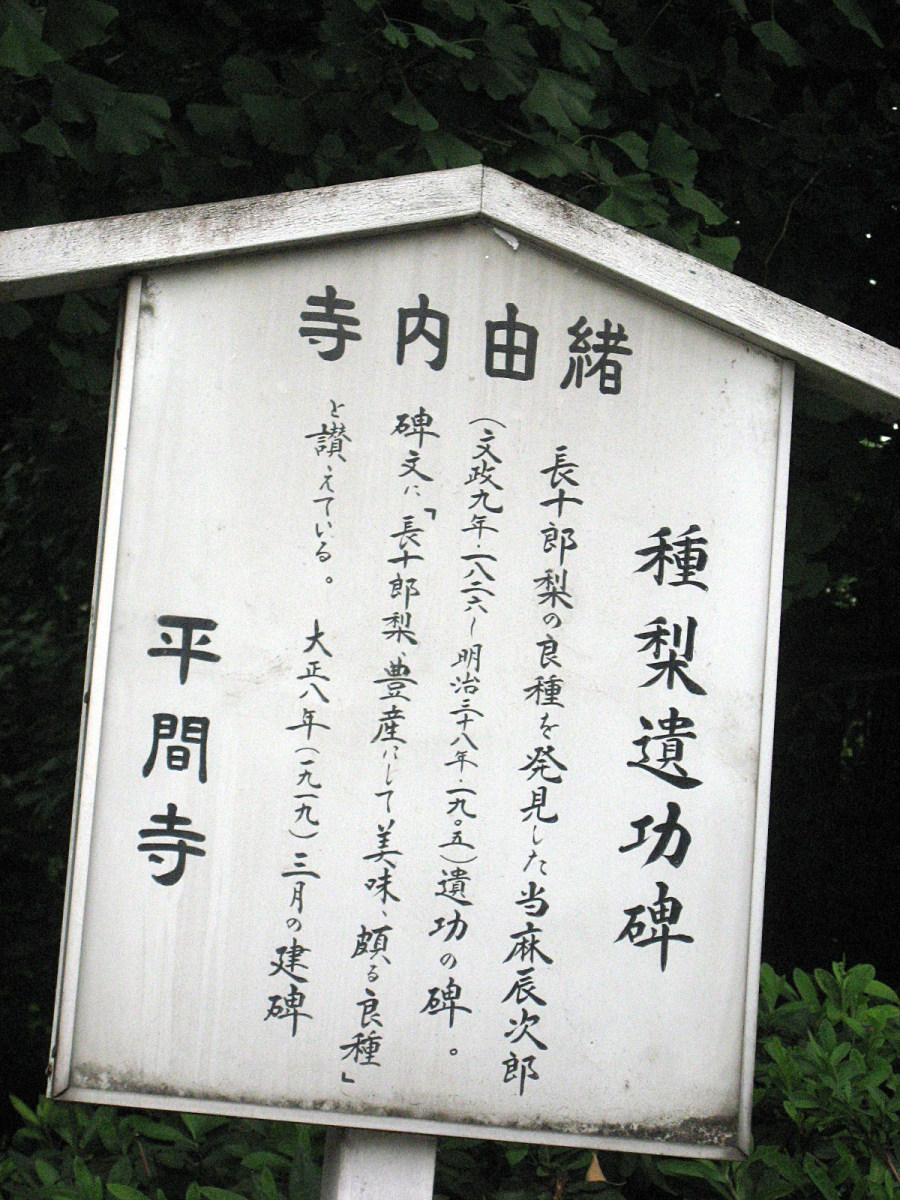 緒由内寺
種梨遺功碑
長十郎梨の良種を発見した当麻辰次郎
(文政九年・一八二六〜明治三十八年・一九〇五)遺功の碑。
碑文に「長十郎梨、豊産にして美味、頗る良種」
と讃えている。 大正八年(一九一九)三月の建碑
平間寺